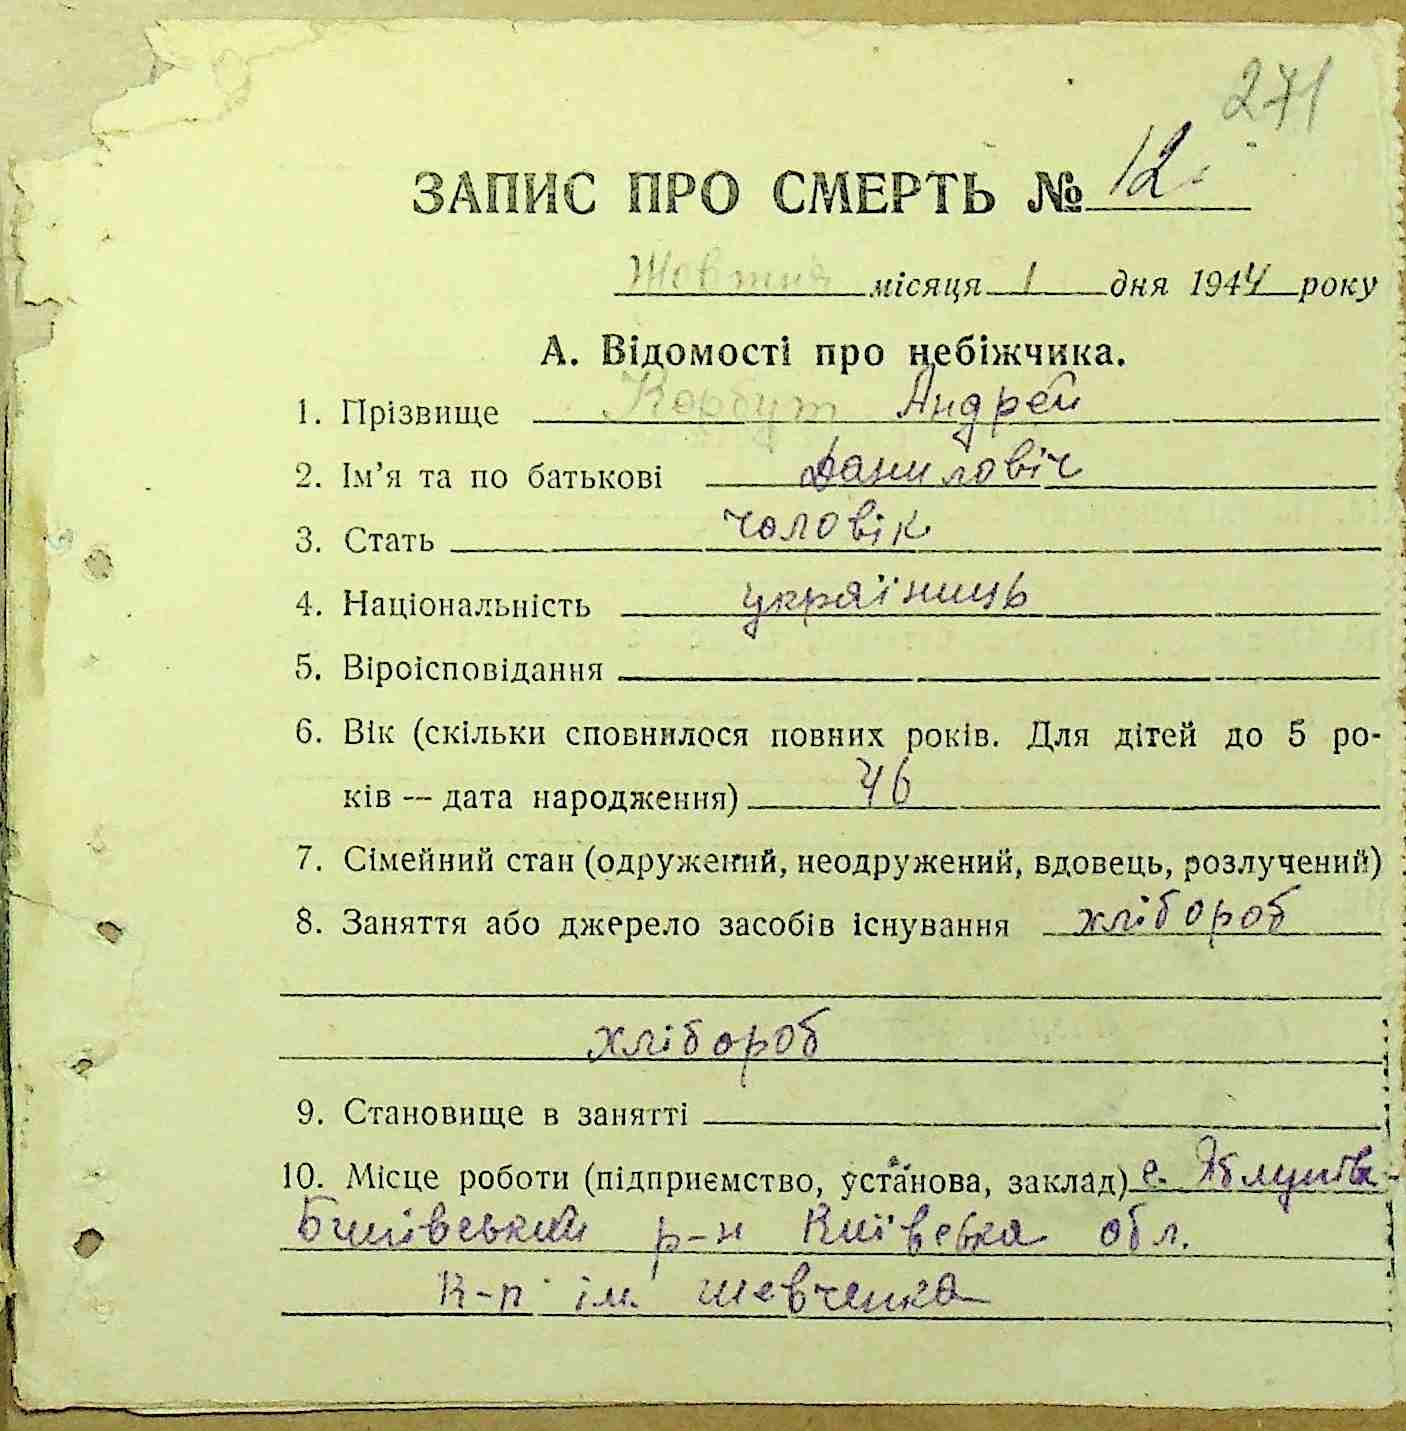 271
ЗАПИС ПРО СМЕРТЬ № 12
Жовтня місяця 1 дня 1944 року
А. Відомості про небіжчика.
1. Прізвище Корбут Андрей
2. Ім'я та по батькові Даниловіч
3. Стать чоловік
4. Національність українець
5. Віроісповідання
6. Вік (скільки сповнилося повних років. Для дітей до 5 ро-
ків — дата народження) 46
7. Сімейний стан (одружений, неодружений, вдовець, розлучений)
8. Заняття або джерело засобів існування хлібороб
хлібороб
9. Становище в занятті
10. Місце роботи (підприємство, установа, заклад) с. Яблунівка
р-н Київська обл.
К-п ім. Шевченка